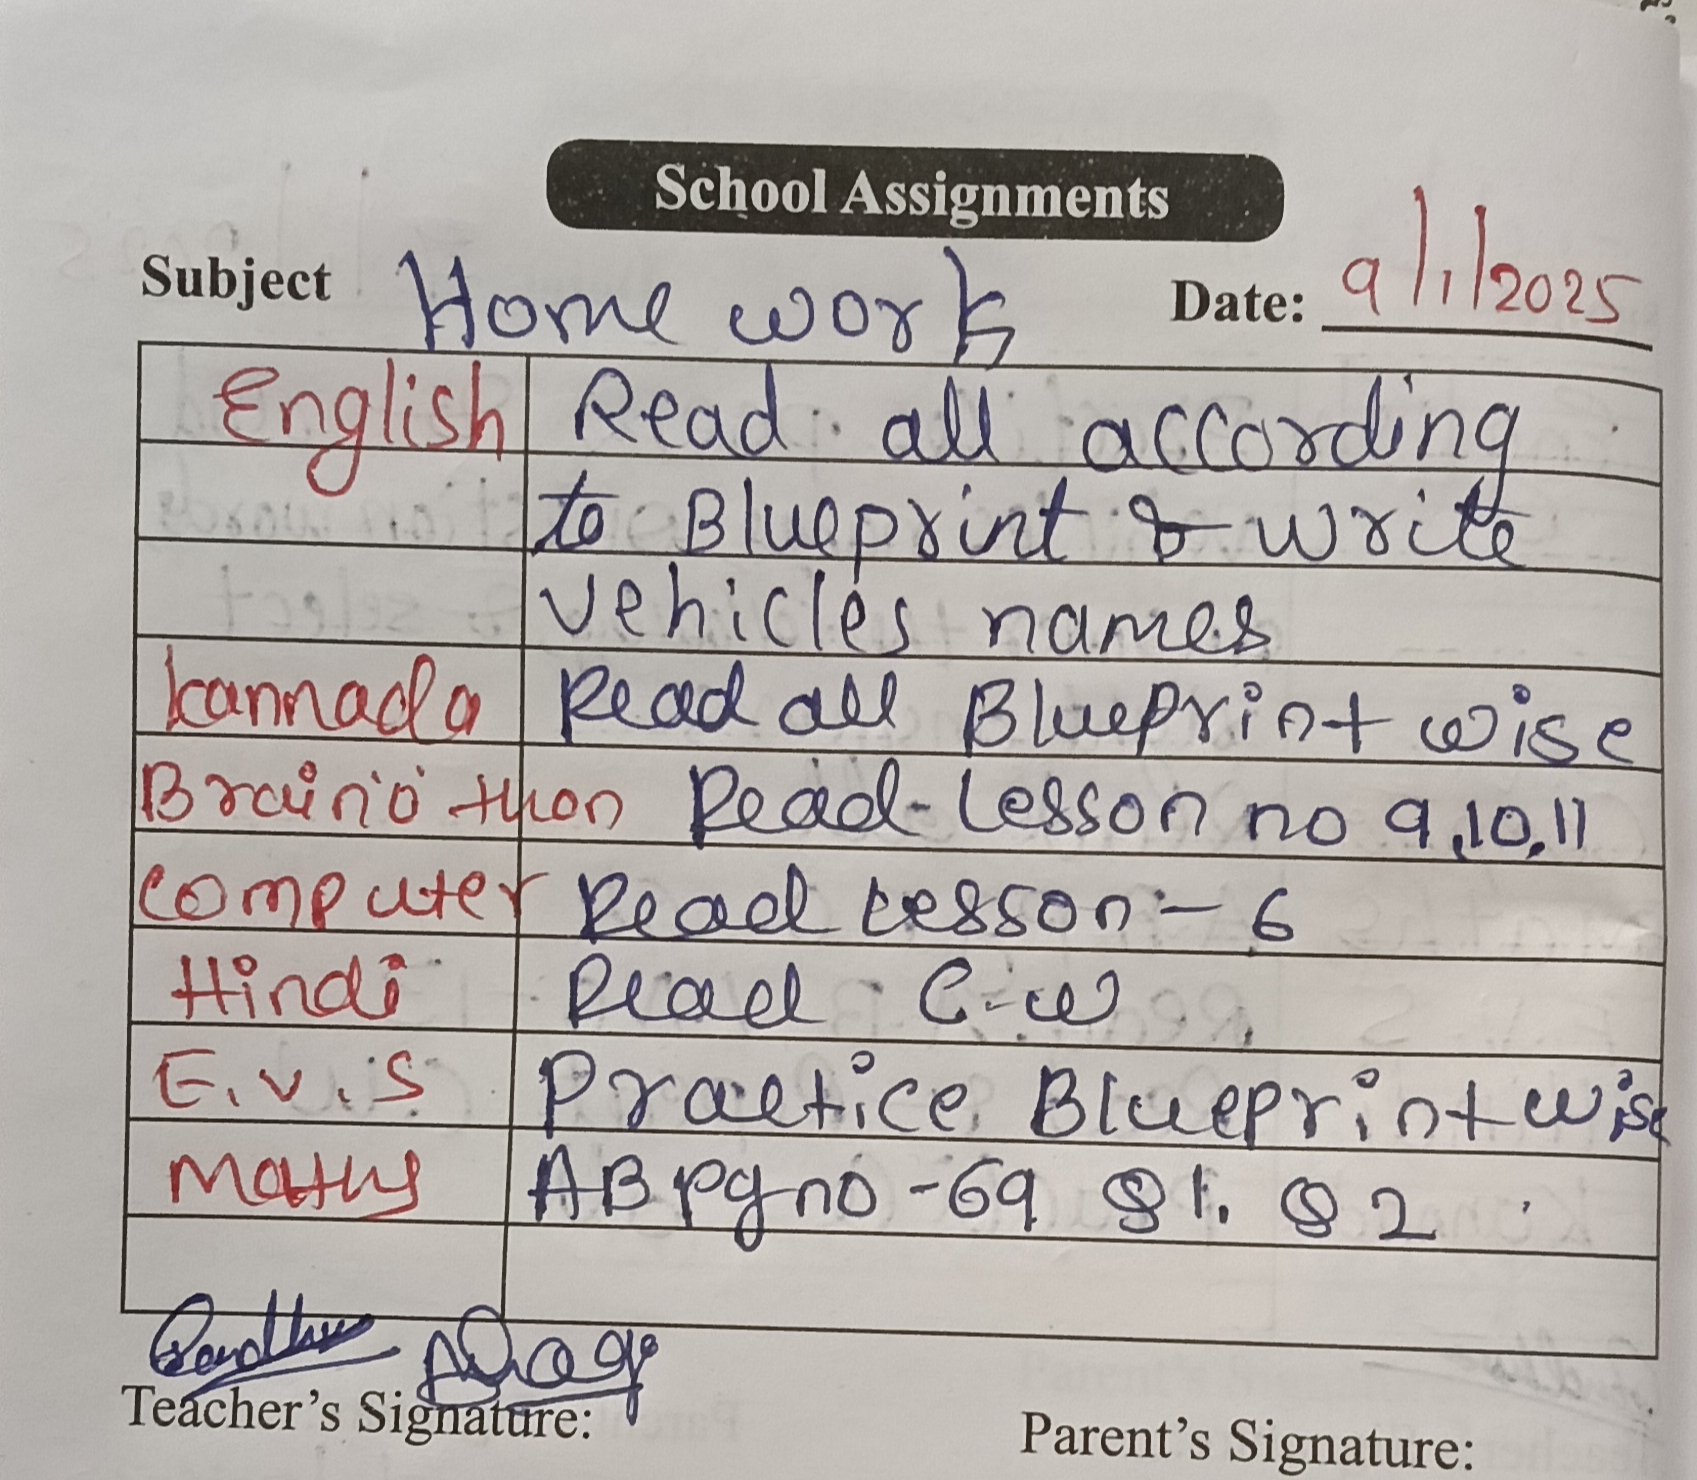 School Assignments
Subject Home work Date: 9/1/2025
English Read all according
to Blueprint & write
vehicles names
kannada Read all Blueprint wise
Braino thon Read Lesson no 9,10,11
computer Read Lesson:- 6
Hindi Read C-w
E.v.s Practice Blueprint wise
Maths AB pg no -69 Q1. Q2
Teacher's Signature:
Parent's Signature: